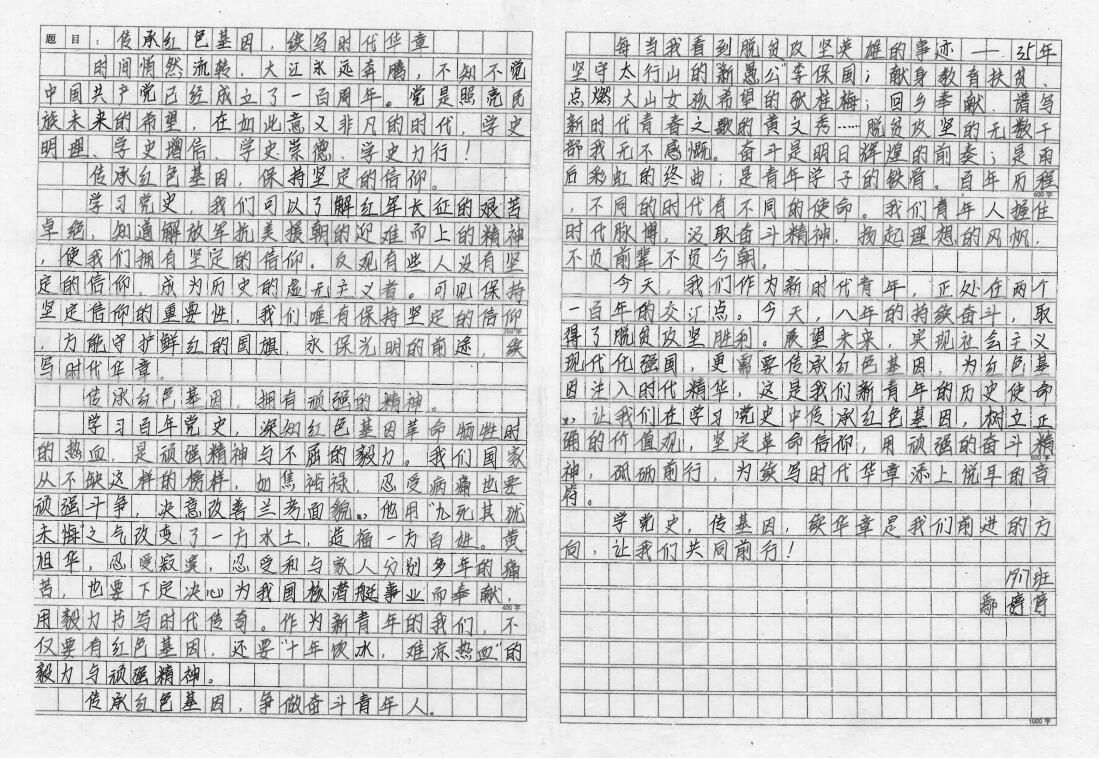 题目：传承红色基因，续写时代华章
时间悄然流转，大江永远奔腾，不知不觉
中国共产党已经成立了一百周年。党是照亮民
族未来的希望，在如此意义非凡的时代，学史
明理、学史增信、学史崇德、学史力行！
传承红色基因，保持坚定的信仰。
学习党史，我们可以了解红军长征的艰苦
卓绝，知道解放军抗美援朝的迎难而上的精神
，使我们拥有坚定的信仰。反观有些人没有坚
定的信仰，成为历史的虚无主义者。可见保持
坚定信仰的重要性，我们唯有保持坚定的信仰
200字
，方能守护鲜红的国旗，永保光明的前途，续
写时代华章。
传承红色基因，拥有顽强的精神。
学习百年党史，深知红色基因革命牺牲时
的热血，是顽强精神与不屈的毅力。我们国家
从不缺这样的榜样，如焦裕禄，忍受病痛也要
顽强斗争，决意改善兰考面貌，他用“九死其犹
未悔之气改变了一方水土，造福一方百姓。黄
旭华，忍受寂寞，忍受和与家人分别多年的痛
苦，也要下定决心为我国核潜艇事业而奉献，
400字
用毅力书写时代传奇。作为新青年的我们，不
仅要有红色基因，还要“十年饮冰，难凉热血”的
毅力与顽强精神。
传承红色基因，争做奋斗青年人。
每当我看到脱贫攻坚英雄的事迹——35年
坚守太行山的“新愚公”李保国；献身教育扶贫、
点燃大山女孩希望的张桂梅；回乡奉献、谱写
新时代青春之歌的黄文秀……脱贫攻坚的无数干
部我无不感慨。奋斗是明日辉煌的前奏；是雨
后彩虹的终曲；是青年学子的铁肩。百年历程
600字
，不同的时代有不同的使命。我们青年人握住
时代脉搏，汲取奋斗精神，扬起理想的风帆，
不负前辈不负今朝。
今天，我们作为新时代青年，正处在两个
一百年的交汇点。今天，八年的持续奋斗，取
得了脱贫攻坚胜利。展望未来，实现社会主义
现代化强国，更需要传承红色基因，为红色基
因注入时代精华，这是我们新青年的历史使命
，让我们在学习党史中传承红色基因，树立正
确的价值观，坚定革命信仰，用顽强的奋斗精
800字
神，砥砺前行，为续写时代华章添上悦耳的音
符。
学党史，传基因，续华章是我们前进的方
向，让我们共同前行！
1917班
鄢婷婷
1000字